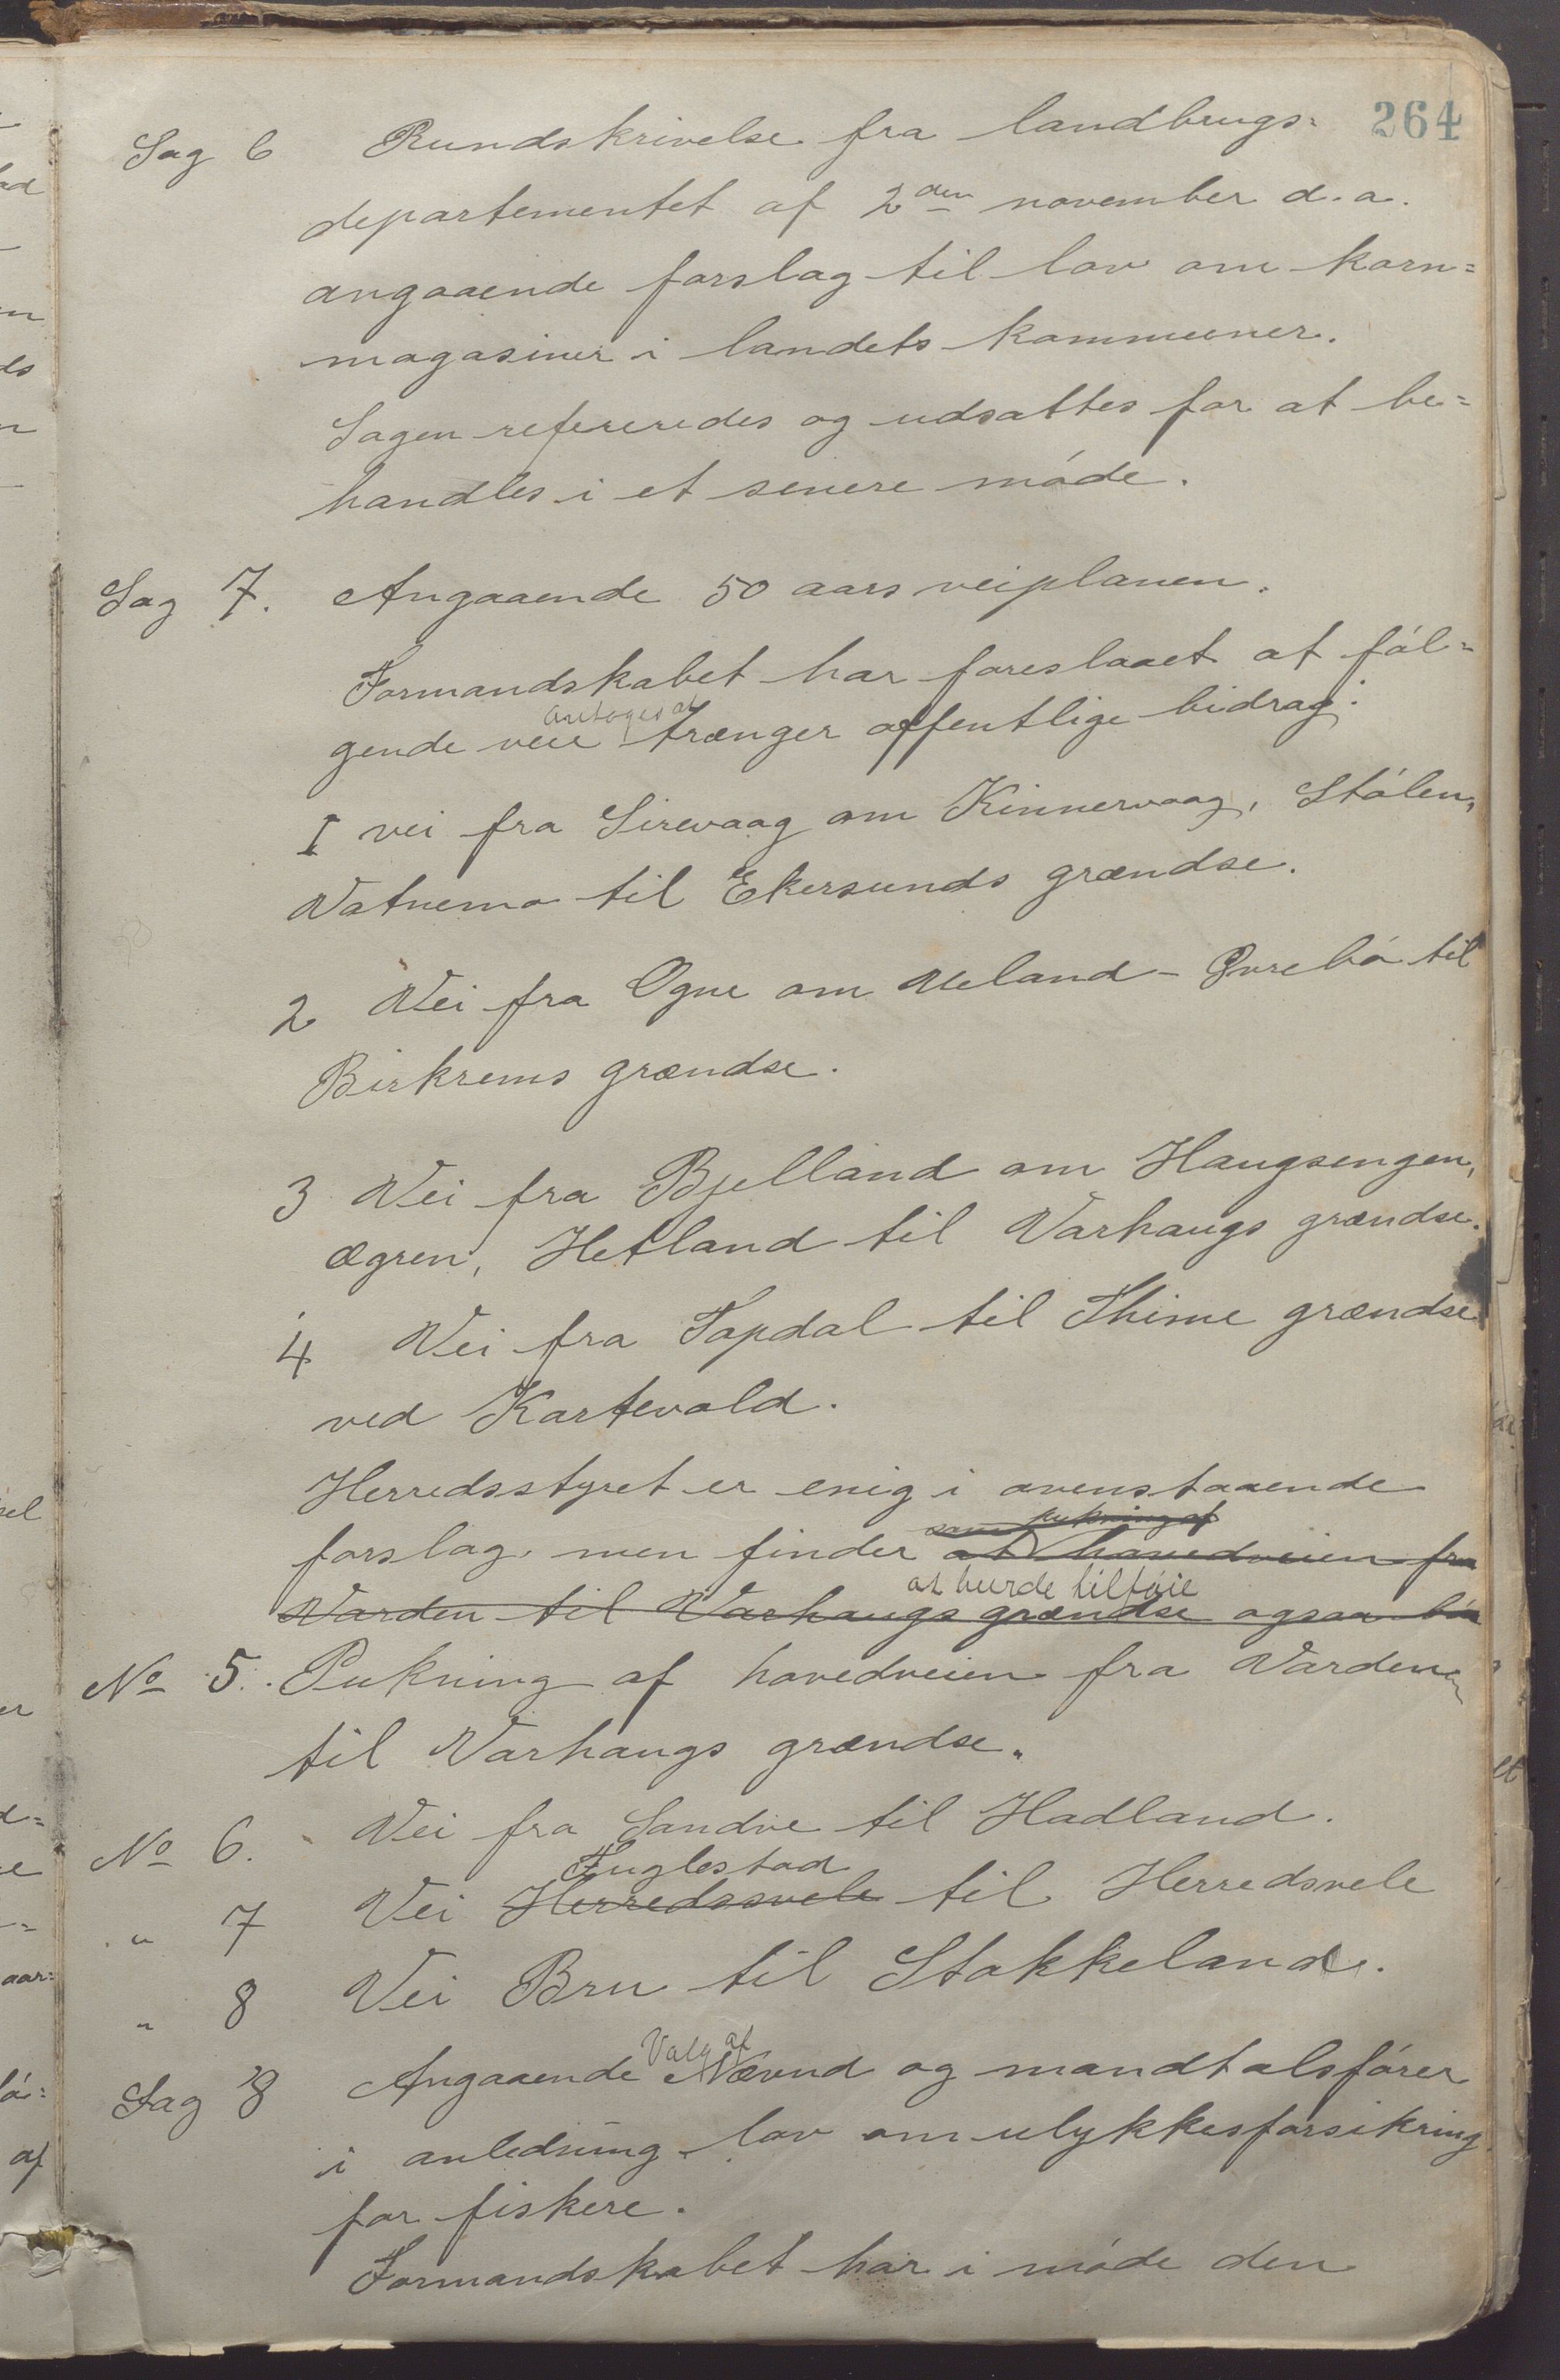 264
Sag 6 Rundskrivelse fra landbrugs=
departementet af 2den november d.a.
angaaende forslag til lov om korn=
magasiner i landets kommuner.
Sagen refereredes og udsattes for at be=
handles i et senere møde.
Sag 7. Angaaende 50 aars veiplanen.
Formandskabet har foreslaaet at føl=
antages at
gende veie trænger offentlige bidrag:
1 vei fra Sirevaag om Kinnervaag, Stølen,
Vatnemo til Ekersunds grændse.
2 Vei fra Ogne om Ueland - Øvrebø til
Birkrems grændse.
3 Vei fra Bjelland om Haugsengen,
Øgren, Hetland til Varhaugs grændse.
4 Vei fra Tapdal til Thime grændse
ved Kartevold.
Herredsstyret er enig i ovenstaaende
som pukning af
forslag men finder at hovedveien fra
at burde tilføie
Varden til Varhaugs grændse ogsaa bør
No 5. Pukning af hovedveien fra Varden
til Varhaugs grændse.
No 6. Vei fra Sandve til Hadland.
Fuglestad
" 7 Vei Herredssvele til Herredsvele
" 8 Vei Bru til Stokkeland.
Valg af
Sag 8 Angaaende Nævnd og mandtalsfører
i anledning lov om ulykkesforsikring
for fiskere.
Formandskabet har i møde den